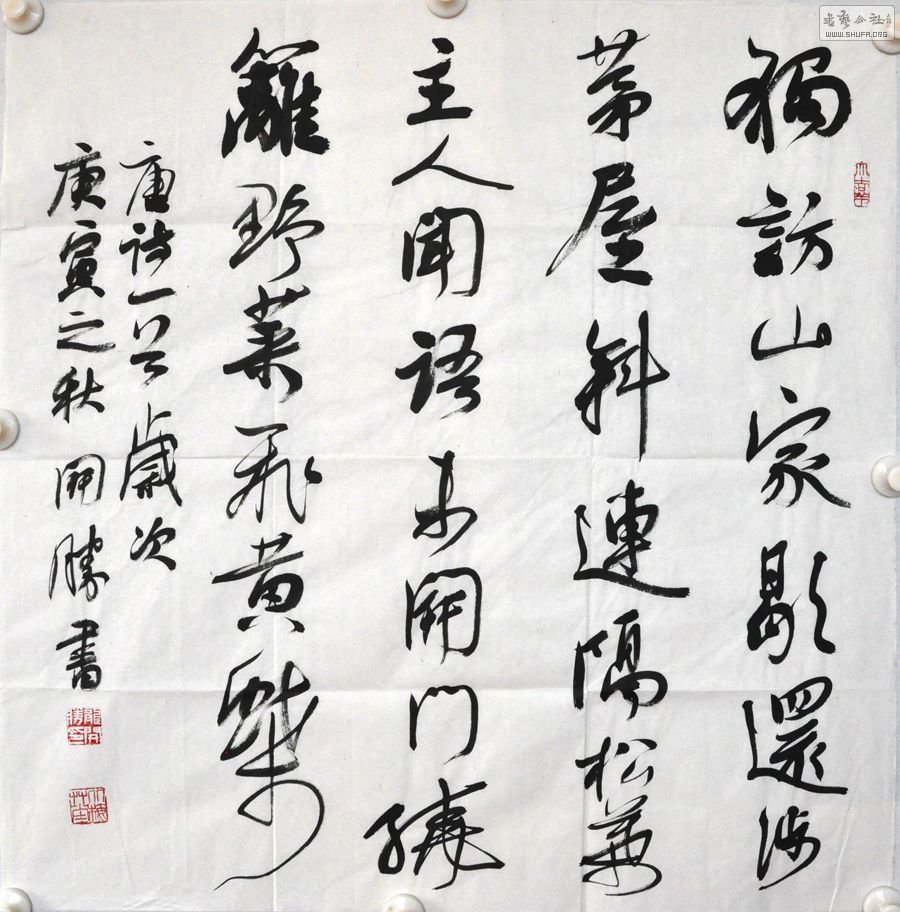 獨訪山家歇還涉
茅屋斜連隔松葉
主人聞語未開門繞
籬野菜飛黄蝶
唐詩一首歲次
庚寅之秋開勝書
書藝公社
WWW.SHUFA.ORG